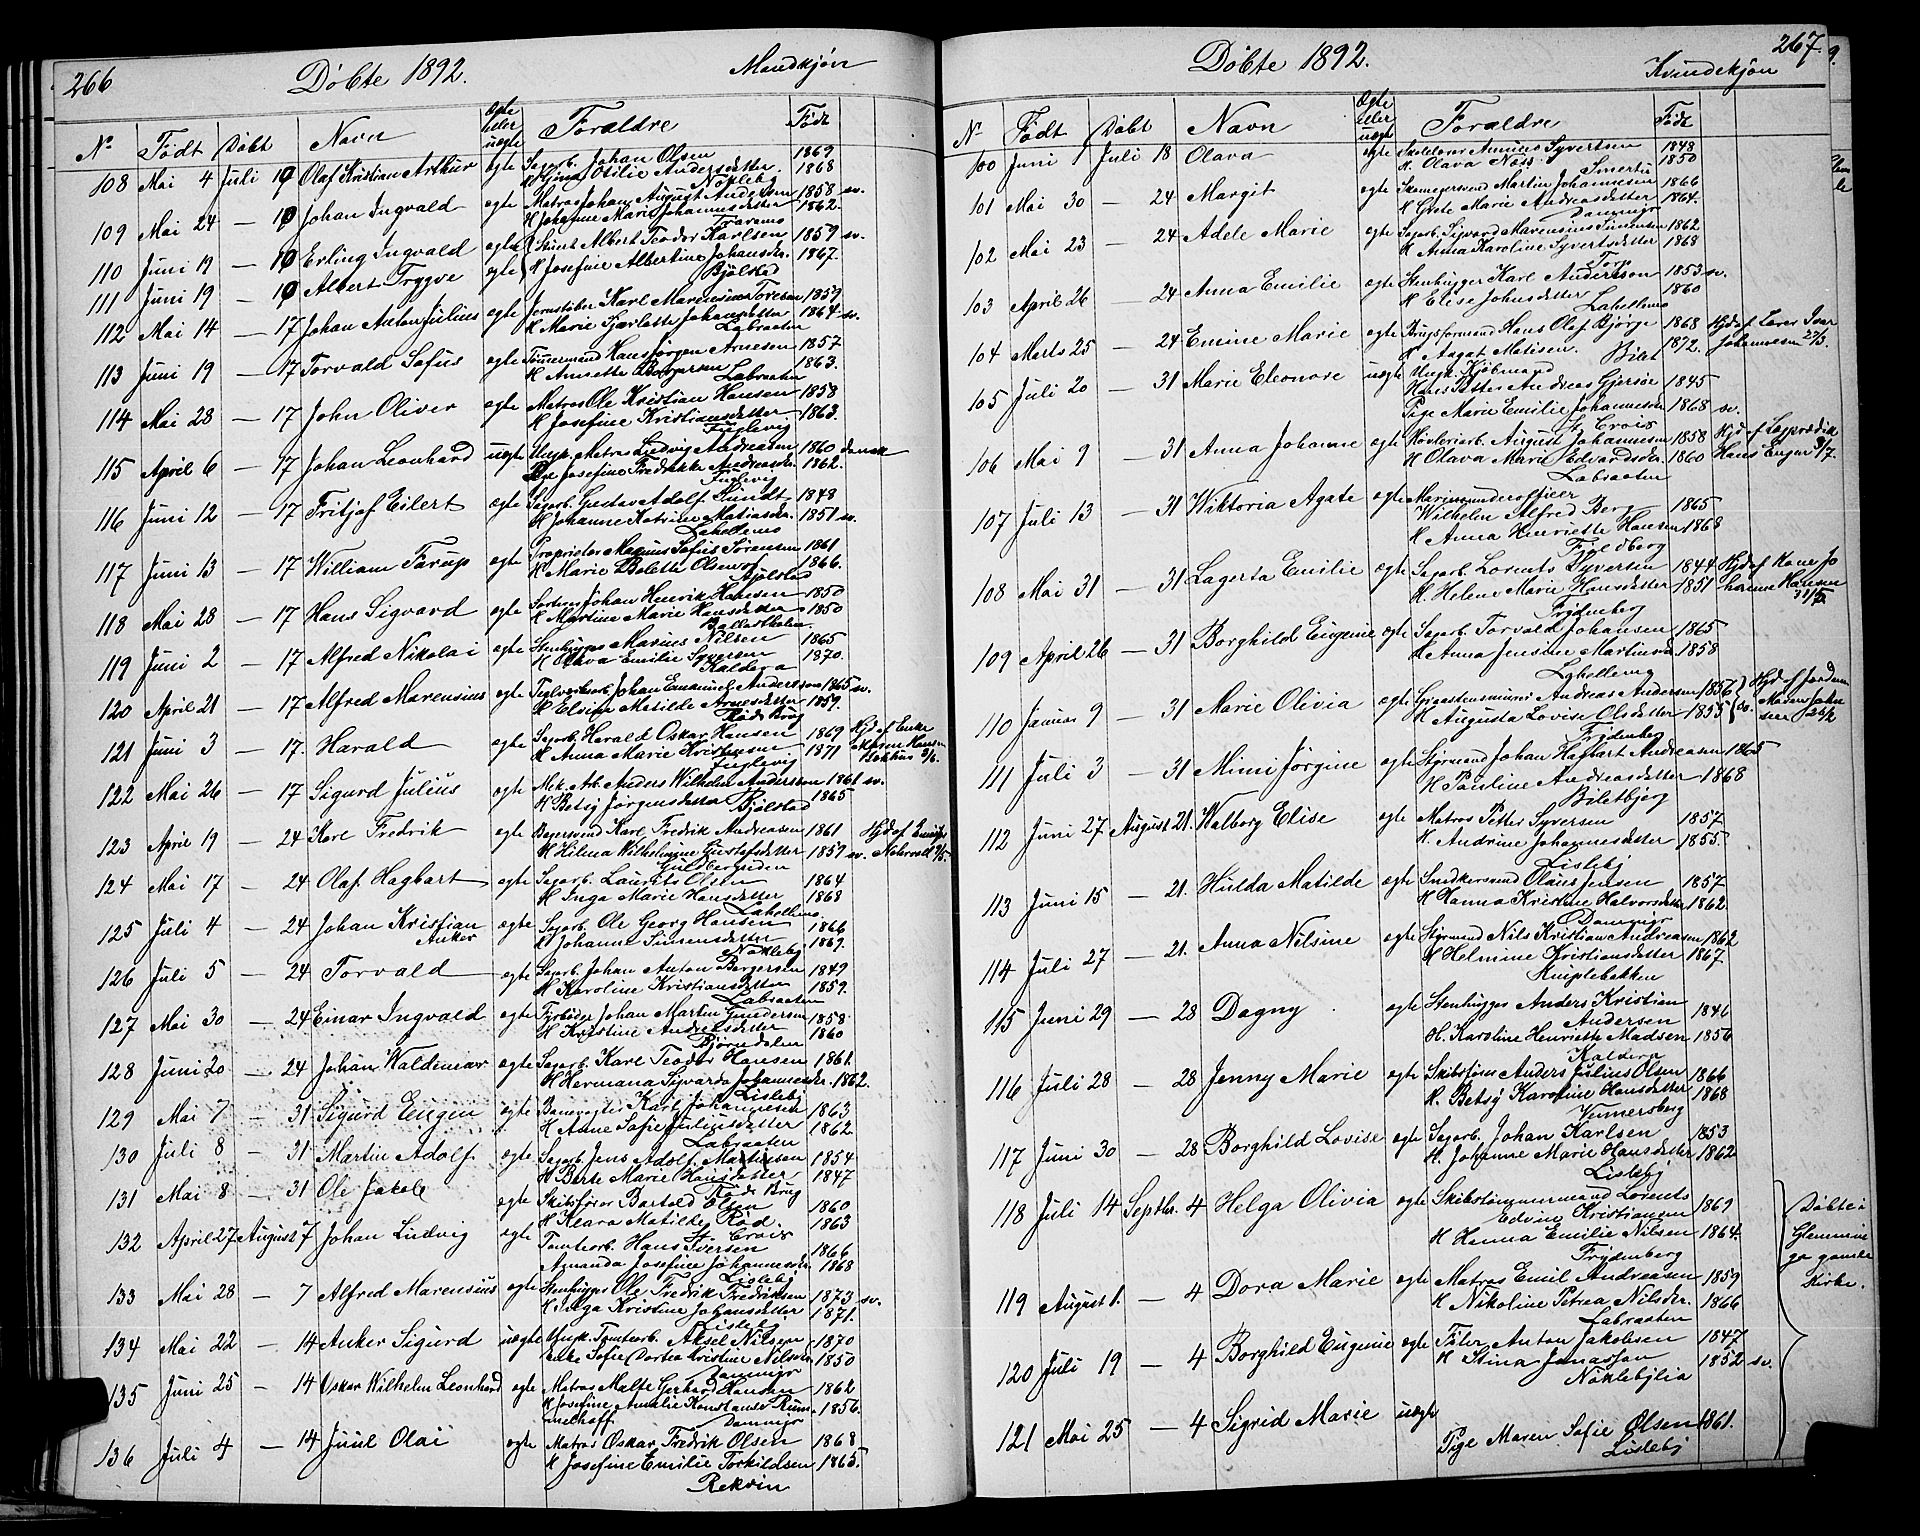 266
Döbte 1892.
Mandkjön
No
Födt
Döbt
Navn
Ægte eller uægte
Foraldre
Födt
108 Mai 4 Juli 10 Olaf Kristian Arthur ægte Sagarb. Johan Olsen 1869
H Gina Otilie Andersdatter 1868
Nökleby
109 Mai 24 — 10 Johan Ingvald ægte Matros Johan August Andersen 1858 sv.
H Johanne Marie Johannesdatter 1862.
110 Juni 19 — 10 Erling Ingvald ægte Albert Teodor Karlsen 1859 sv.
111 Juni 19 — 10 Albert Trygve ægte H Josefine Albertine Johansdr. 1867.
Bjölstad
112 Mai 14 — 17 Johan Anton Julius ægte Jernstöber Karl Marensius Toresen 1859
H Marie Sjarlotte Johansdatter 1864 sv.
Labraaten
113 Juni 19 — 17 Torvald Sofus ægte Tömmermand Hans Jörgen Arnesen 1857
H Annette Borgersen 1863.
Labraaten
114 Mai 28 — 17 John Oliver ægte Matros Ole Kristian Hansen 1858
H Josefine Kristiansdatter 1863.
Fuglevig
115 April 6 — 17 Johan Leonhard uægte Ungk. Matros Ludvig Andreasen 1860 dansk
Pige Josefine Fredrikke Andreasdr. 1862.
Fuglevig
116 Juni 12 — 17 Fritjof Eilert ægte Sagarb. Gustav Adolf Lundt 1848
H Johanne Katrine Matiasdr. 1851 sv.
Lahellemo
117 Juni 13 — 17 William Tarup ægte Proprietor Magnus Sofus Sörensen 1861
H Marie Bolette Olsen 1866.
Bjölstad
118 Mai 28 — 17 Hans Sigvard ægte Johan Henrik Hansen 1850
H Martine Marie Hansdatter 1850
119 Juni 2 — 17 Alfred Nikolai ægte Stenhugger Marius Nilsen 1865
H Olava Emilie Syversen 1870.
Kaldera
120 April 21 — 17 Alfred Marensius ægte Teglverksarb. Johan Emanuel Andersson 1865 sv.
H Elvine Matilde Arnesdatter 1859.
Röds Brug
121 Juni 3 — 17. Harald ægte Sagarb. Harald Oskar Hansen 1869 Hjd af Enke
H Anna Marie Kristiansen 1871 Maren Hansen
Fuglevig Bakhus 3/6.
122 Mai 26 — 17 Sigurd Julius ægte Mek. Arb. Anders Wilhelm Andersson 1861 sv.
H Betsy Jörgensdatter 1865
Bjölstad
123 April 19 — 24 Karl Fredrik ægte Bagersvend Karl Fredrik Andreasen 1861 Hjd af
H Hilma Wilhelmine Gustafsdatter 1859 sv.
124 Mai 17 — 24 Olaf Hagbart ægte Sagarb. Laurits Olsen 1864
H Inga Marie Hansdatter 1868
Lahellemo.
125 Juli 4 — 24 Johan Kristian Anker ægte Sagarb. Ole Georg Hansen 1866
H Johanne Simensdatter 1869.
Nökleby
126 Juli 5 — 24 Torvald ægte Sagarb. Johan Anton Borgersen 1849
H Karoline Kristiansdatter 1859.
Labraaten
127 Mai 30 — 24 Einar Ingvald ægte Fyrböder Johan Martin Gundersen 1858.
H Kristine Andreasdatter 1860
Bjørndalen
128 Juni 20 — 24 Johan Waldemar ægte Sagarb. Karl Teodor Hansen 1861.
H Hermana Sigvarda Johannesdr. 1862.
Lisleby
129 Mai 7 — 31 Sigurd Eugen ægte Banevogter Karl Johannesen 1863
H Anne Sofie Juliusdatter 1862.
Labraaten
130 Juli 8 — 31 Martin Adolf. ægte Sagarb. Jens Adolf Martinsen 1854
H Berte Marie Hansdatter 1847
Röds Brug
131 Mai 8 — 31 Ole Jakob ægte Skibsförer Bartold Olsen 1860
H Klara Matilde Röd. 1863
St Croix
132 April 27 August 7 Johan Ludvig ægte Tomtearb. Hans Iversen 1866
Amanda Josefine Johannesdr. 1868
Lisleby
133 Mai 28 — 7 Alfred Marensius ægte Stenhugger Ole Fredrik Fredriksen 1873 sv.
H Inga Kristine Johansdatter 1871.
Lisleby
134 Mai 22 — 14 Anker Sigurd uægte Ungk. Tomtearb. Aksel Nilsen 1870
Enke Sofie Dortea Kristine Nilsdr. 1850
Dammyr
135 Juni 25 — 14 Oskar Wilhelm Leonhard ægte Matros Malte Gerhard Hansen 1862
H Josefine Amalie Konstanse Rummelhoff. 1856.
Dammyr
136 Juli 4 — 14 Juul Olai ægte Matros Oskar Fredrik Olsen 1868
H Josefine Emilie Torkildsen 1865.
Rekvin
267.
Döbte 1892.
Kvindekjön
No
Födt
Döbt
Navn
Ægte eller uægte
Foraldre
Födt
100 Juni 1 Juli 18 Olava ægte Skoleforer Syvertsen 1848
H. Olava Næss 1850
101 Mai 30 — 24 Margit ægte Skomagersvend Martin Johannesen 1866
H Grete Marie Andreasdatter 1864.
Dammyr
102 Mai 23 — 24 Adele Marie ægte Sagarb. Sigvard Marensius Simensen 1862
H Anna Karoline Syvertsdatter 1868
Torp
103 April 26 — 24 Anna Emilie ægte Stenhugger Karl Andersson 1853 sv.
H Elise Johnsdatter 1860
Lahellemo
104 Marts 25 — 24 Emine Marie ægte Brugsformand Hans Olaf Bjørge 1868 Hjd af Lærer Ivar
H Aagot Matisen. 1872. Johannesen 27/3.
Bilet
105 Juli 20 — 31 Marie Eleonore uægte Ungk. Kjöbmand
Hans Petter Andreas Gjersöe 1845
Pige Marie Emilie Johannesdr 1868 sv.
St Croix
106 Mai 9 — 31 Anna Johanne ægte Hövleriarb. August Johannesen 1858 Hjd af Lægprædik
H Olava Marie Edvardsdr. 1860 Hans Enger 3/7.
Labraaten
107 Juli 13 — 31 Wiktoria Agate ægte Marineunderofficer
Wilhelm Alfred Berg 1865
H Anna Henriette Hansen 1868
Fjeldberg
108 Mai 31 — 31 Lagerta Emilie ægte Sagarb. Lorents Syversen 1844 Hjd af Kone Jo
H. Helene Marie Hansdatter 1851 hanne Hansen
Frydenberg
109 April 26 — 31 Borghild Eugenie ægte Sagarb. Torvald Johansen 1865
H Anna Jensine Martinsen 1858
Lahellemo
110 Januar 9 — 31 Marie Olivia ægte Graastensmurer Andreas Andersen 1856 Hjd af Jordem
H Augusta Lovise Olsdatter 1855 sv. Maren Johnsen
Frydenberg
111 Juli 3 — 31 Mimi Jörgine ægte Styrmand Johan Hagbart Andreasen 1865
H Pauline Andreasdatter 1868
Biletbjerg
112 Juni 27 August 21. Walborg Elise ægte Matros Petter Syversen 1857
H. Andrine Johannesdatter 1855.
Lisleby
113 Juni 15 — 21. Hulda Matilde ægte Snedkersvend Olaus Jensen 1857
H Hanna Kristine Halvorsdatter 1862.
Dammyr
114 Juli 27 — 21. Anna Nilsine ægte Styrmand Nils Kristian Andreasen 1862
H Helmine Kristiansdatter 1867.
Kniplebakken
115 Juni 29 — 28 Dagny ægte Stenhugger Anders Kristian
Andersen 1846
H. Karoline Henriette Madsen 1856
Kaldera
116 Juli 28 — 28 Jenny Marie ægte Skibstöm. Anders Julius Olsen 1866
H. Betsy Karoline Hansdatter 1868
Vinnersberg
117 Juni 30 — 28 Borghild Lovise ægte Sagarb. Johan Karlsen 1853
H. Johanne Marie Hansdatter 1862
Lisleby
118 Juli 14 Septbr. 4 Helga Olivia ægte Skibstömmermand Lorents
Edvin Kristiansen 1869
H Hanna Emilie Nilsen 1864.
Frydenberg
Döbte i
Glemminge gamle
Kirke.
119 August 1. — 4 Dora Marie ægte Matros Emil Andreasen 1859
H Nikoline Petrea Nilsdr. 1866
Labraaten
120 Juli 19 — 4 Borghild Eugenie ægte Filer Anton Jakobsen 1847
H Stina Jonasson 1852 sv.
Nöklebylia
121 Mai 25 — 4 Sigrid Marie uægte
Pige Maren Sofie Olsen 1861.
Lisleby